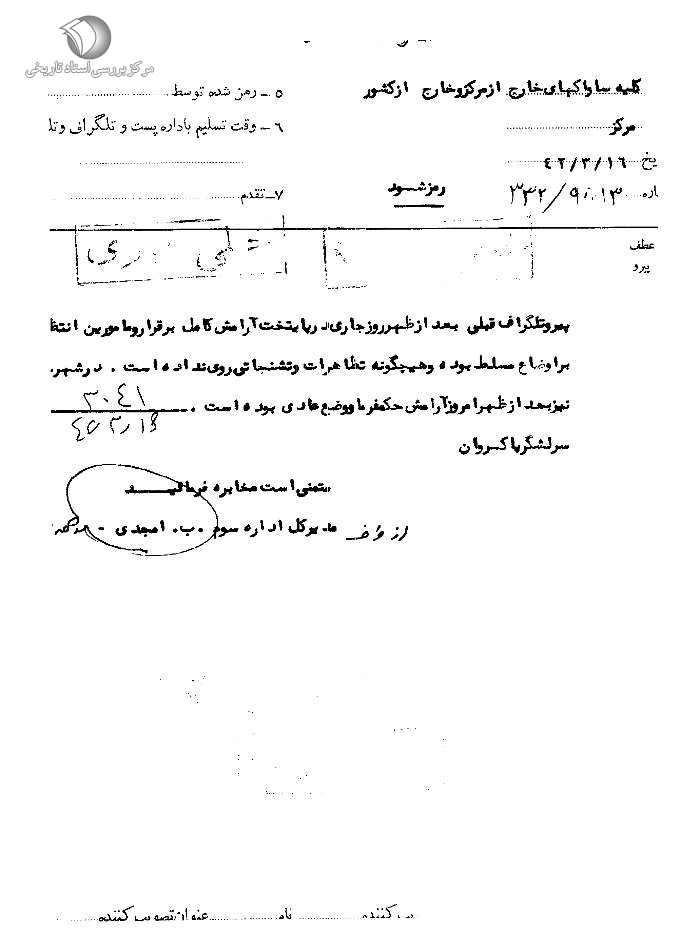 مرکز بررسی اسناد تاریخی
کلیه ساواکهای خارج از مرکز و خارج از کشور
۵ـ رمز شده توسط
مرکز
۶ـ وقت تسلیم باداره پست و تلگراف وتل
یخ ۴۲/۳/۱۶
اره ۳۳۲/
رمز شود
۷ـ تقدم
عطف
پیرو
پیرو تلگراف قبلی بعد از ظهر روز جاری در پایتخت آرامش کامل برقرار و مامورین انتظ
بر اوضاع مسلط بوده و هیچگونه تظاهرات و تشنجاتی روی نداده است . در شهر
نیز بعد از ظهر امروز آرامش حکمفرما و وضع عادی بوده است .
۳۰۴۱
سرلشگر پاکروان
متمنی است مخابره فرمائید
مدیر کل اداره سوم .ب. امجدی -
ب کننده
نام
عنوان تصویب کننده